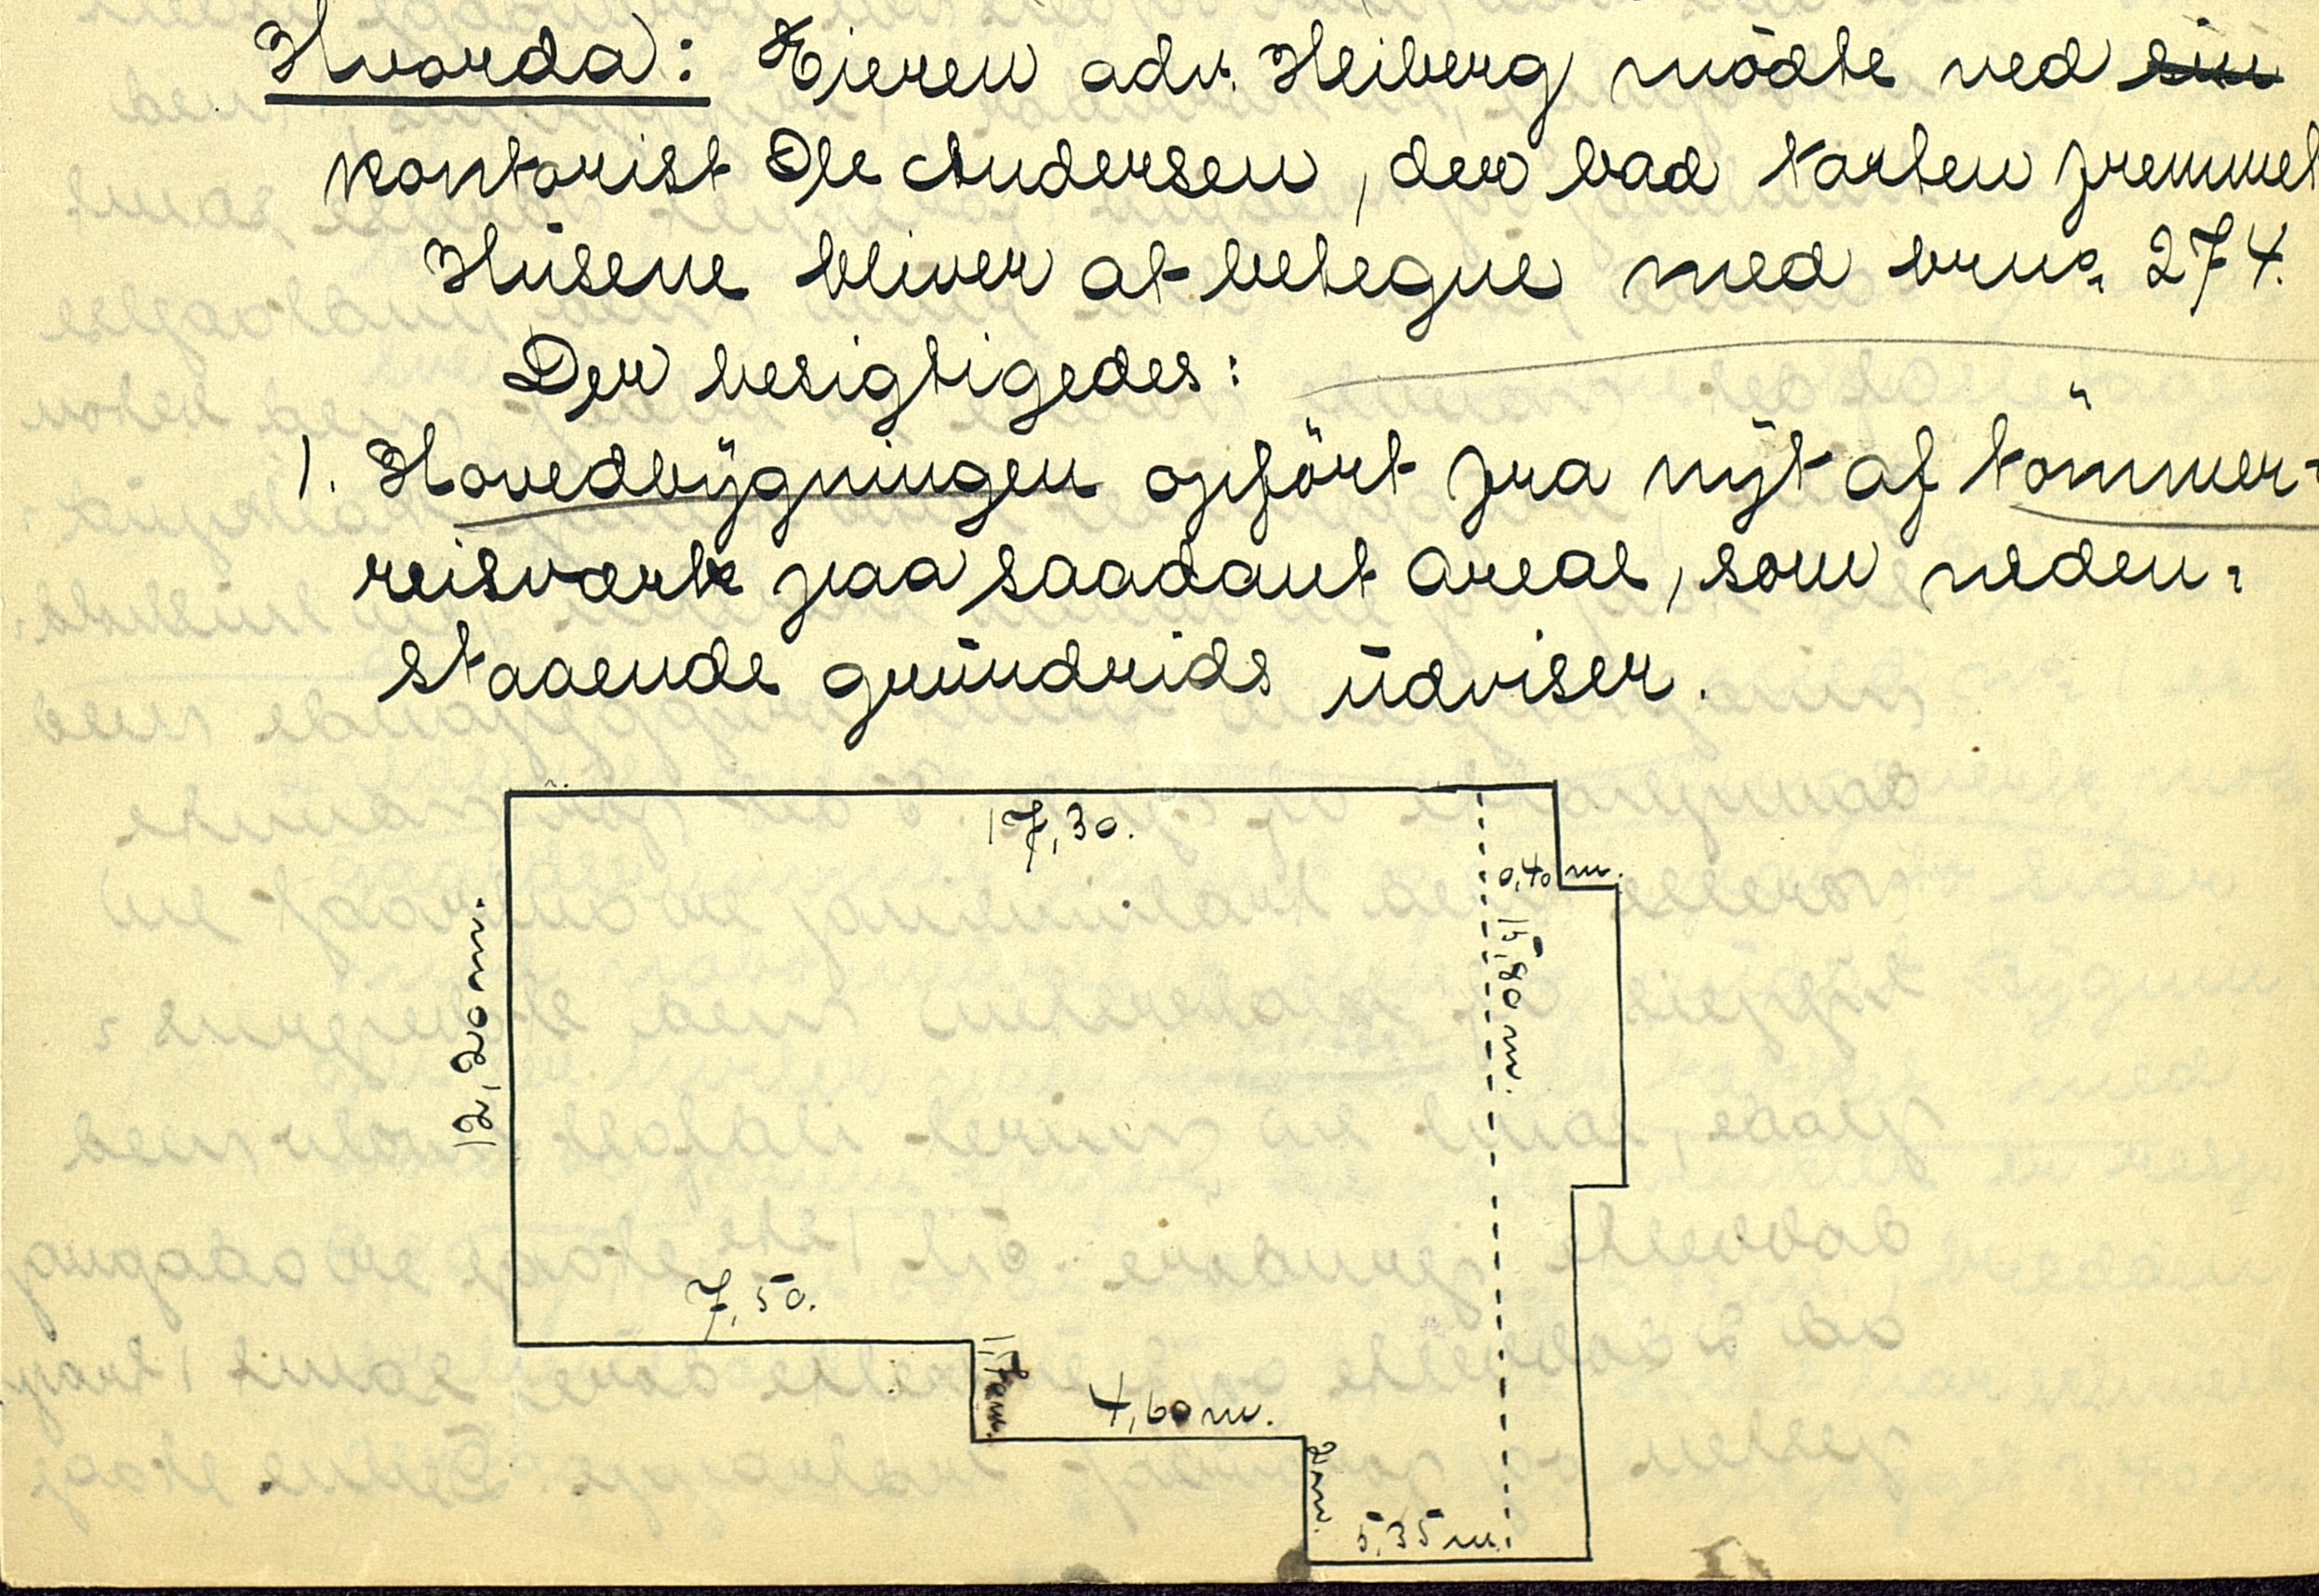 Hvorda: Eieren adv. Heiberg mödte ved sin
kontorist Ole Andersen, der bad tarten fremmet
Husene bliver at betegne med brus 274.
Der besigtigedes:
1. Hovedbygningen opfört fra nyt af tömmer=
reisværk paa saadant areal, som neden=
staaende grundrids udviser.
17,30.
0,40 m.
15,80 m.
12,20 m.
7,50.
4,60 m.
2 m.
5,35 m.